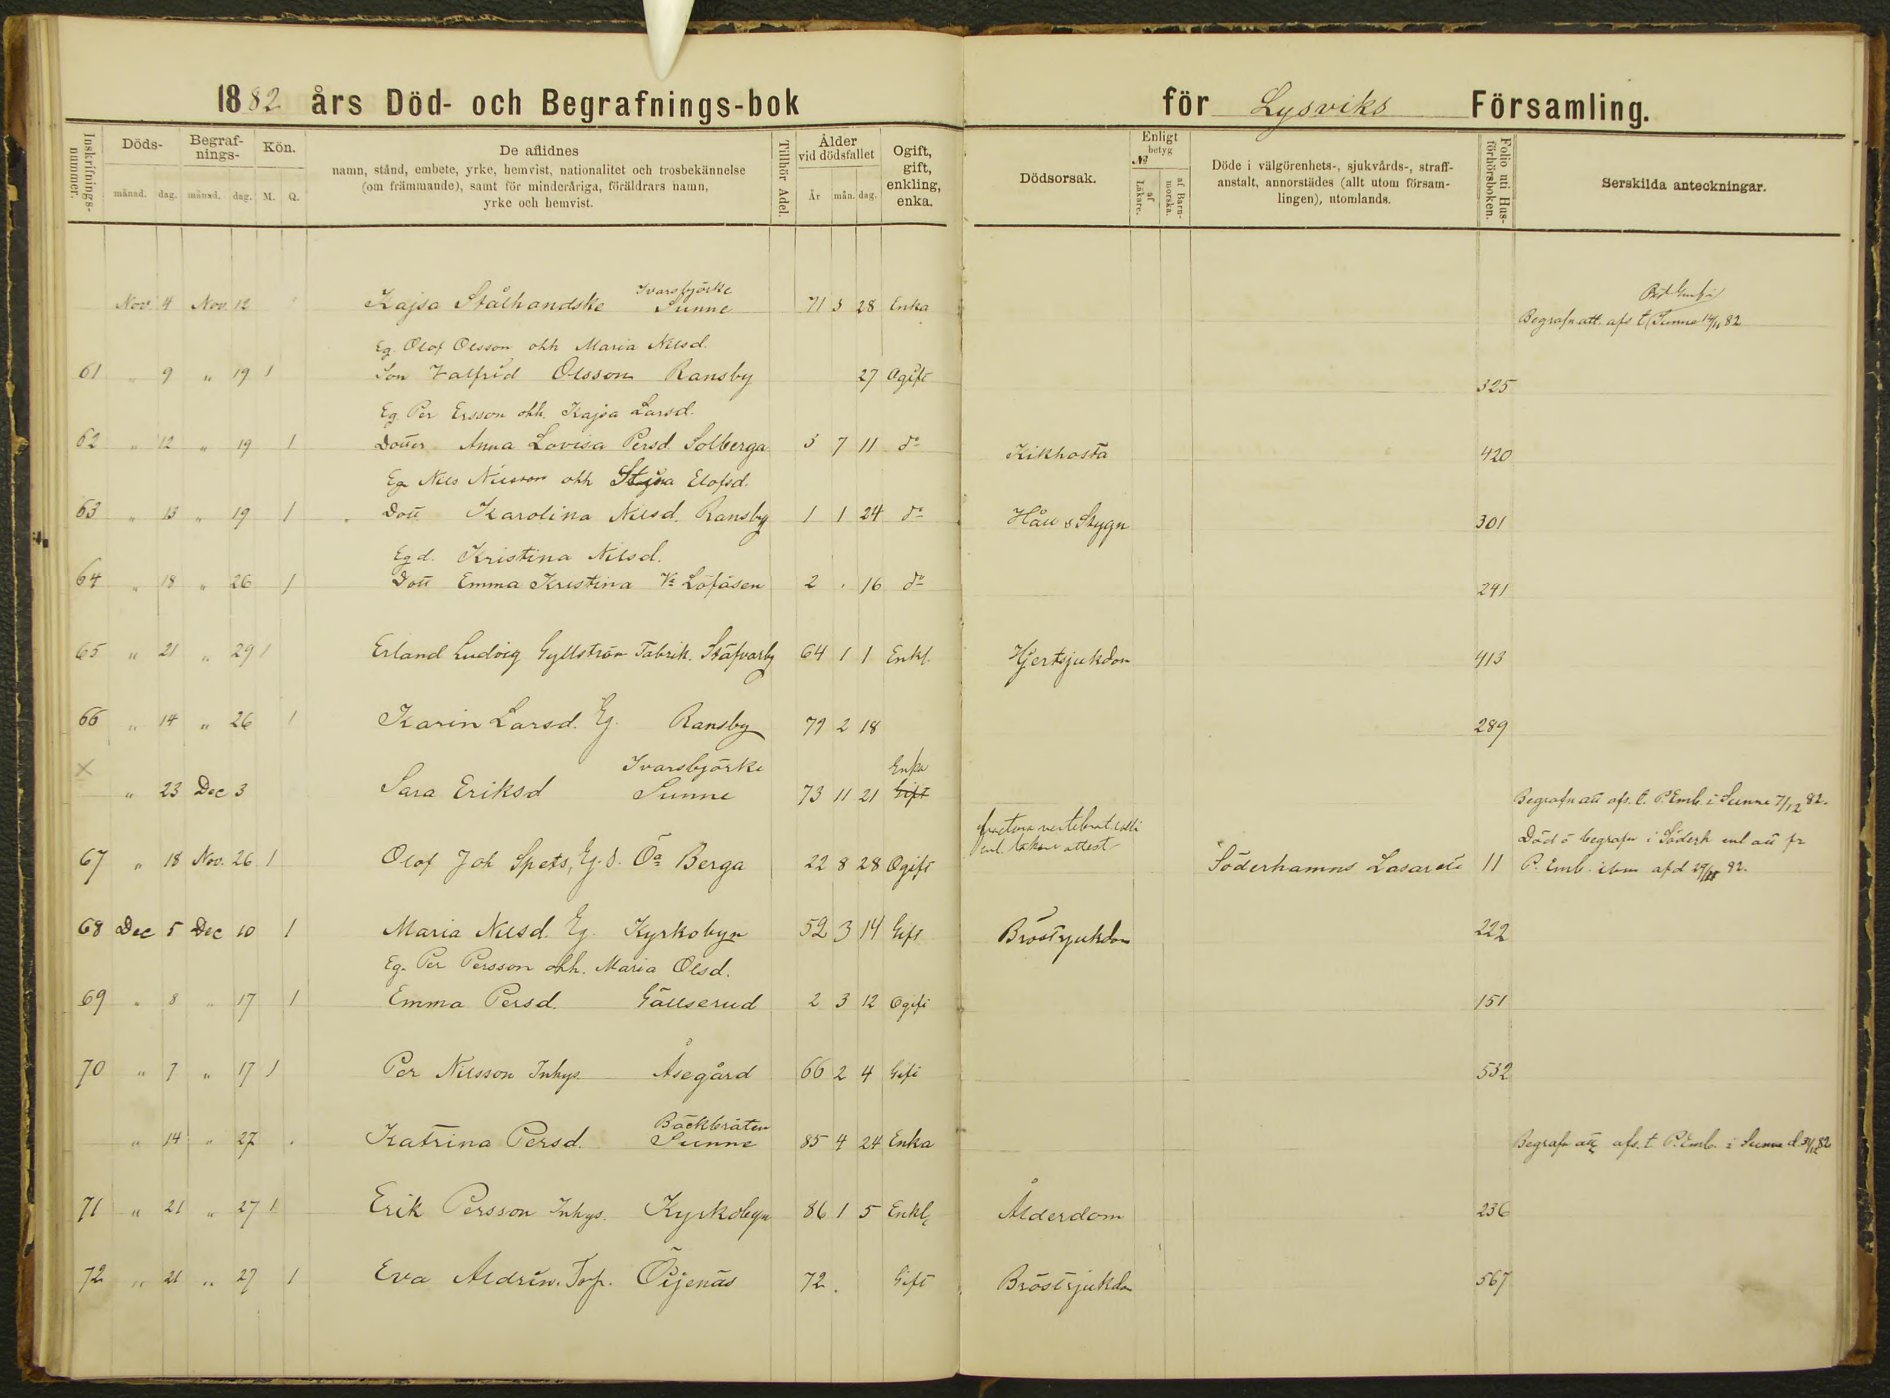 1882 års Död- och Begrafnings-bok för Lysviks Församling.
Inskrifnings-nummer.
Döds-
månad. dag.
Begraf-nings-
månad. dag.
Kön.
M. Q.
De aflidnes
namn, stånd, embete, yrke, hemvist, nationalitet och trosbekännelse
(om främmande), samt för minderåriga, föräldrars namn,
yrke och hemvist.
Tillhör Adel.
Ålder
vid dödsfallet
År mån. dag.
Ogift,
gift,
enkling,
enka.
Dödsorsak.
Enligt
betyg
№
af Läkare.
af Barn-morska.
Döde i välgörenhets-, sjukvårds-, straff-
anstalt, annorstädes (allt utom försam-
lingen), utomlands.
Folio uti Hus-förhörsboken.
Serskilda anteckningar.
Ivarsbjörke
Nov. 4 Nov. 12 Kajsa Stålhandske Sunne 71 3 28 Enka Begrafn att. afs t. Sunne 14/11 82
Eg. Olof Olsson ohh Maria Nilsd.
61 " 9 " 19 1 Son Valfrid Olsson Ransby 27 Ogift 325
Eg. Per Ersson ohh. Kajsa Larsd.
62 " 12 " 19 1 Dotter Anna Lovisa Persd. Solberga 3 7 11 do Kikhosta 420
Eg. Nils Nilsson ohh Stina Elofsd.
63 " 13 " 19 1 Dott Karolina Nilsd. Ransby 1 1 24 do Håll o Stygn 301
Eg d. Kristina Nilsd.
64 " 18 " 26 1 Dott Emma Kristina Va Löfåsen 2 . 16 do 241
65 " 21 " 29 1 Erland Ludvig Gyllström Fabrik. Stafvarby 64 1 1 Enkl. Hjertsjukdom 413
66 " 14 " 26 1 Karin Larsd. Eg. Ransby 79 2 18 289
× Ivarsbjörke Enka
" 23 Dec 3 Sara Eriksd Sunne 73 11 21 Gift Begrafn att afs. t. P. Emb. i Sunne 7/12 82.
fractura vertebrat. colli
enl. läkare attest Död o begrafn i Söderh enl att fr
67 " 18 Nov. 26 1 Olof Joh Spets, Eg. d. Öa Berga 22 8 28 Ogift Söderhamns Lasarett 11 P. Emb. ibm afd 29/11 82.
68 Dec 5 Dec 10 1 Maria Nilsd. Eg. Kyrkobyn 52 3 14 Gift Bröstsjukdom 222
Eg. Per Persson ohh. Maria Olsd.
69 " 8 " 17 1 Emma Persd. Gällserud 2 3 12 Ogift 151
70 " 7 " 17 1 Per Nilsson Inhys Åsegård 66 2 4 Gift 532
Backbråten
" 14 " 27 Katrina Persd. Sunne 85 4 24 Enka Begrafn att afs. t P. Emb. i Sunne d 31/12 82
71 " 21 " 27 1 Erik Persson Inhys. Kyrkobyn 86 1 5 Enkl. Ålderdom 236
72 " 21 " 27 1 Eva Aldrin. Torp. Öijenäs 72 . Gift Bröstsjukdom 567